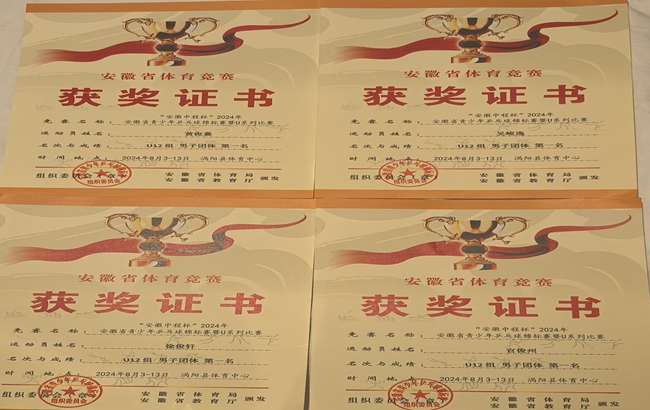 安徽省体育竞赛
获奖证书
竞赛名称：“安徽中程杯”2024年
安徽省青少年乒乓球锦标赛暨U系列比赛
运动员姓名：黄俊熹
名次与成绩：U12组 男子团体 第一名
时间地点：2024年8月3-13日 涡阳县体育中心
组织委员会（章）
安徽省体育局
安徽省教育厅
颁发
组织委员会
安徽省体育竞赛
获奖证书
竞赛名称：“安徽中程杯”2024年
安徽省青少年乒乓球锦标赛暨U系列比赛
运动员姓名：吴峻逸
名次与成绩：U12组 男子团体 第一名
时间地点：2024年8月3-13日 涡阳县体育中心
组织委员会（章）
安徽省体育局
安徽省教育厅
颁发
组织委员会
安徽省体育竞赛
获奖证书
竞赛名称：“安徽中程杯”2024年
安徽省青少年乒乓球锦标赛暨U系列比赛
运动员姓名：徐俊轩
名次与成绩：U12组 男子团体 第一名
时间地点：2024年8月3-13日 涡阳县体育中心
组织委员会（章）
安徽省体育局
安徽省教育厅
颁发
组织委员会
安徽省体育竞赛
获奖证书
竞赛名称：“安徽中程杯”2024年
安徽省青少年乒乓球锦标赛暨U系列比赛
运动员姓名：官俊州
名次与成绩：U12组 男子团体 第一名
时间地点：2024年8月3-13日 涡阳县体育中心
组织委员会（章）
安徽省体育局
安徽省教育厅
颁发
组织委员会